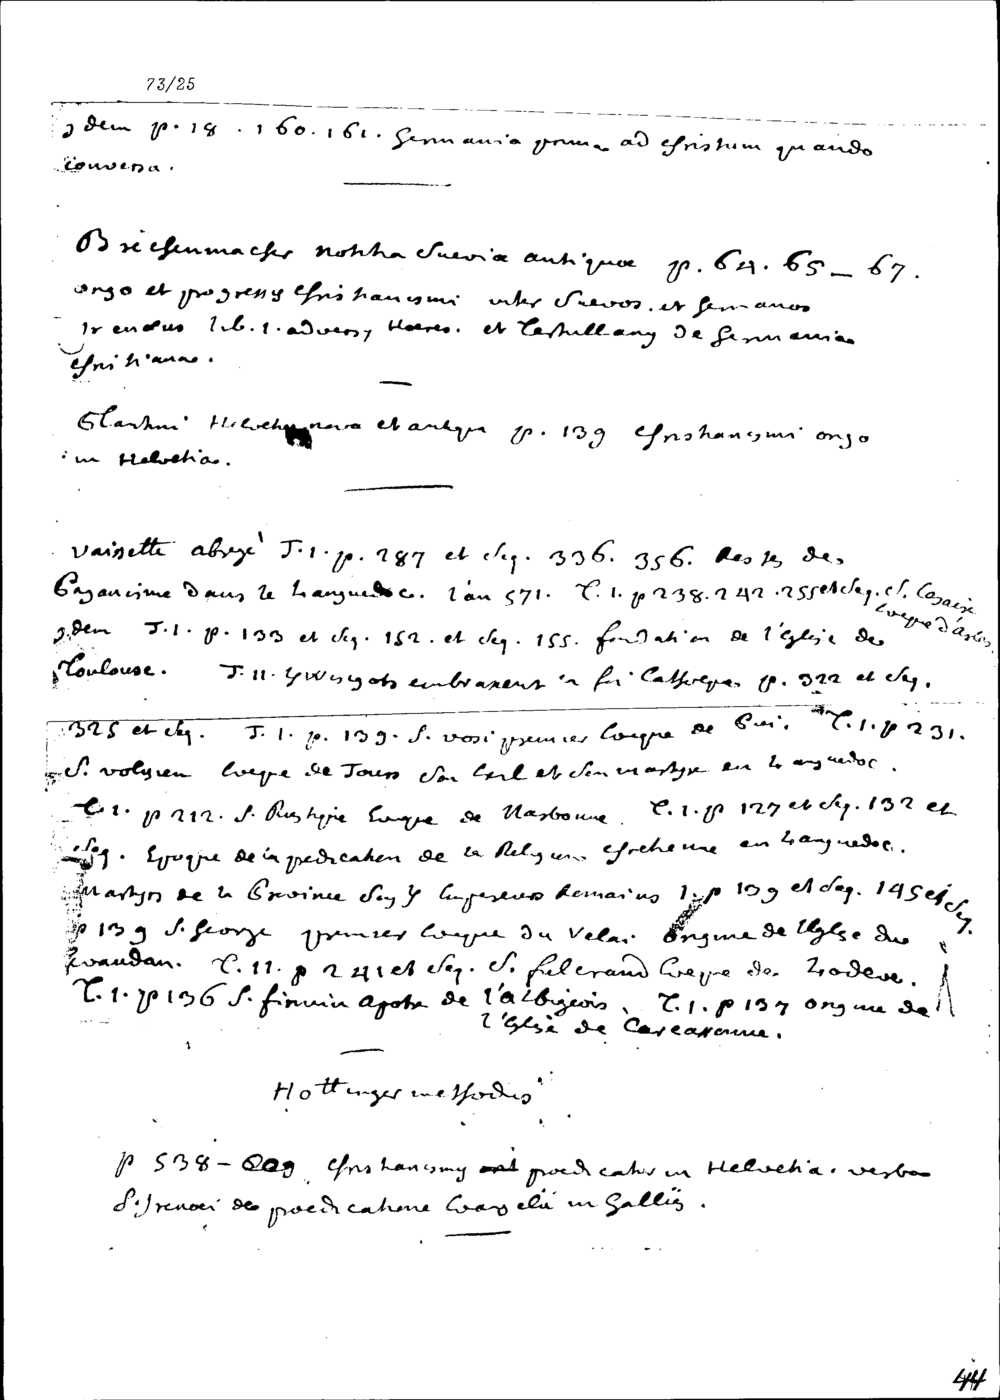 73/25
Jdem p. 18 . 160. 161. Germania prima ad Christum quando
conversa.
Breichenmacher notitia Sueviæ antiquæ p. 64. 65 – 67.
origo et progressus Christianismi inter Suevos et Germanos
Irenæus lib. 1. advers, Hæres. et Tertullany de Germania
Christiana.
Plantini Helvetia nova et antiqua p. 139 Christianismi origo
in Helvetia.
Vaissette abregé T. 1. p. 287 et seq. 336. 356. Restes de
Paganisme dans le Languedoc. l'an 571. T. 1. p 238. 242. 255 et seq. S. Cesaire
Eveque d'Arles.
Jdem T. 1. p. 133 et seq. 152. et seq. 155. fondation de l'Eglise de
Toulouse. T. 11. Wisigots embrassent la foi Catholique p. 322 et seq.
325 et seq. T. 1. p. 139. S. vosi premier Eveque de Pui. T. 1. p 231.
S. volusien Eveque de Tours son Exil et son martyre en Languedoc.
T. 1. p 212. S. Rustique Eveque de Narbonne. T. 1. p 127 et seq. 132 et
seq. Epoque de la predication de la Religion chretienne en Languedoc.
Martyrs de la Province sous les Empereurs Romains 1. p 139 et seq. 145 et seq.
p 139 S. George premier Eveque du Velai. Origine de l'Eglise du
Gevaudan. T. 11. p 241 et seq. S. fulcrand Eveque de Lodeve.
T. 1. p 136 S. firmin Apotre de l'Albigeois. T. 1. p 137 origine de
l'Eglise de Carcassonne.
Hottinger methodus
p 538 – Christianismus prædicatus in Helvetia. verba
S. Irenæi de prædicatione Evangelii in Galliis.
44